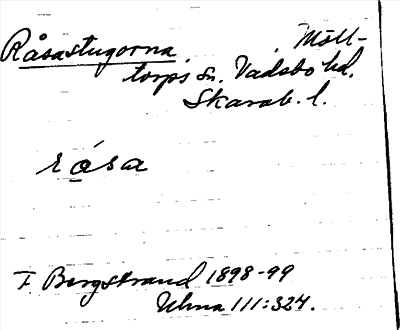 Råsastugorna. Möll-
torps sn. Vadsbo hd.
Skarab. l.
råsa
F Bergstrand 1898-99
Ulma 111:324.